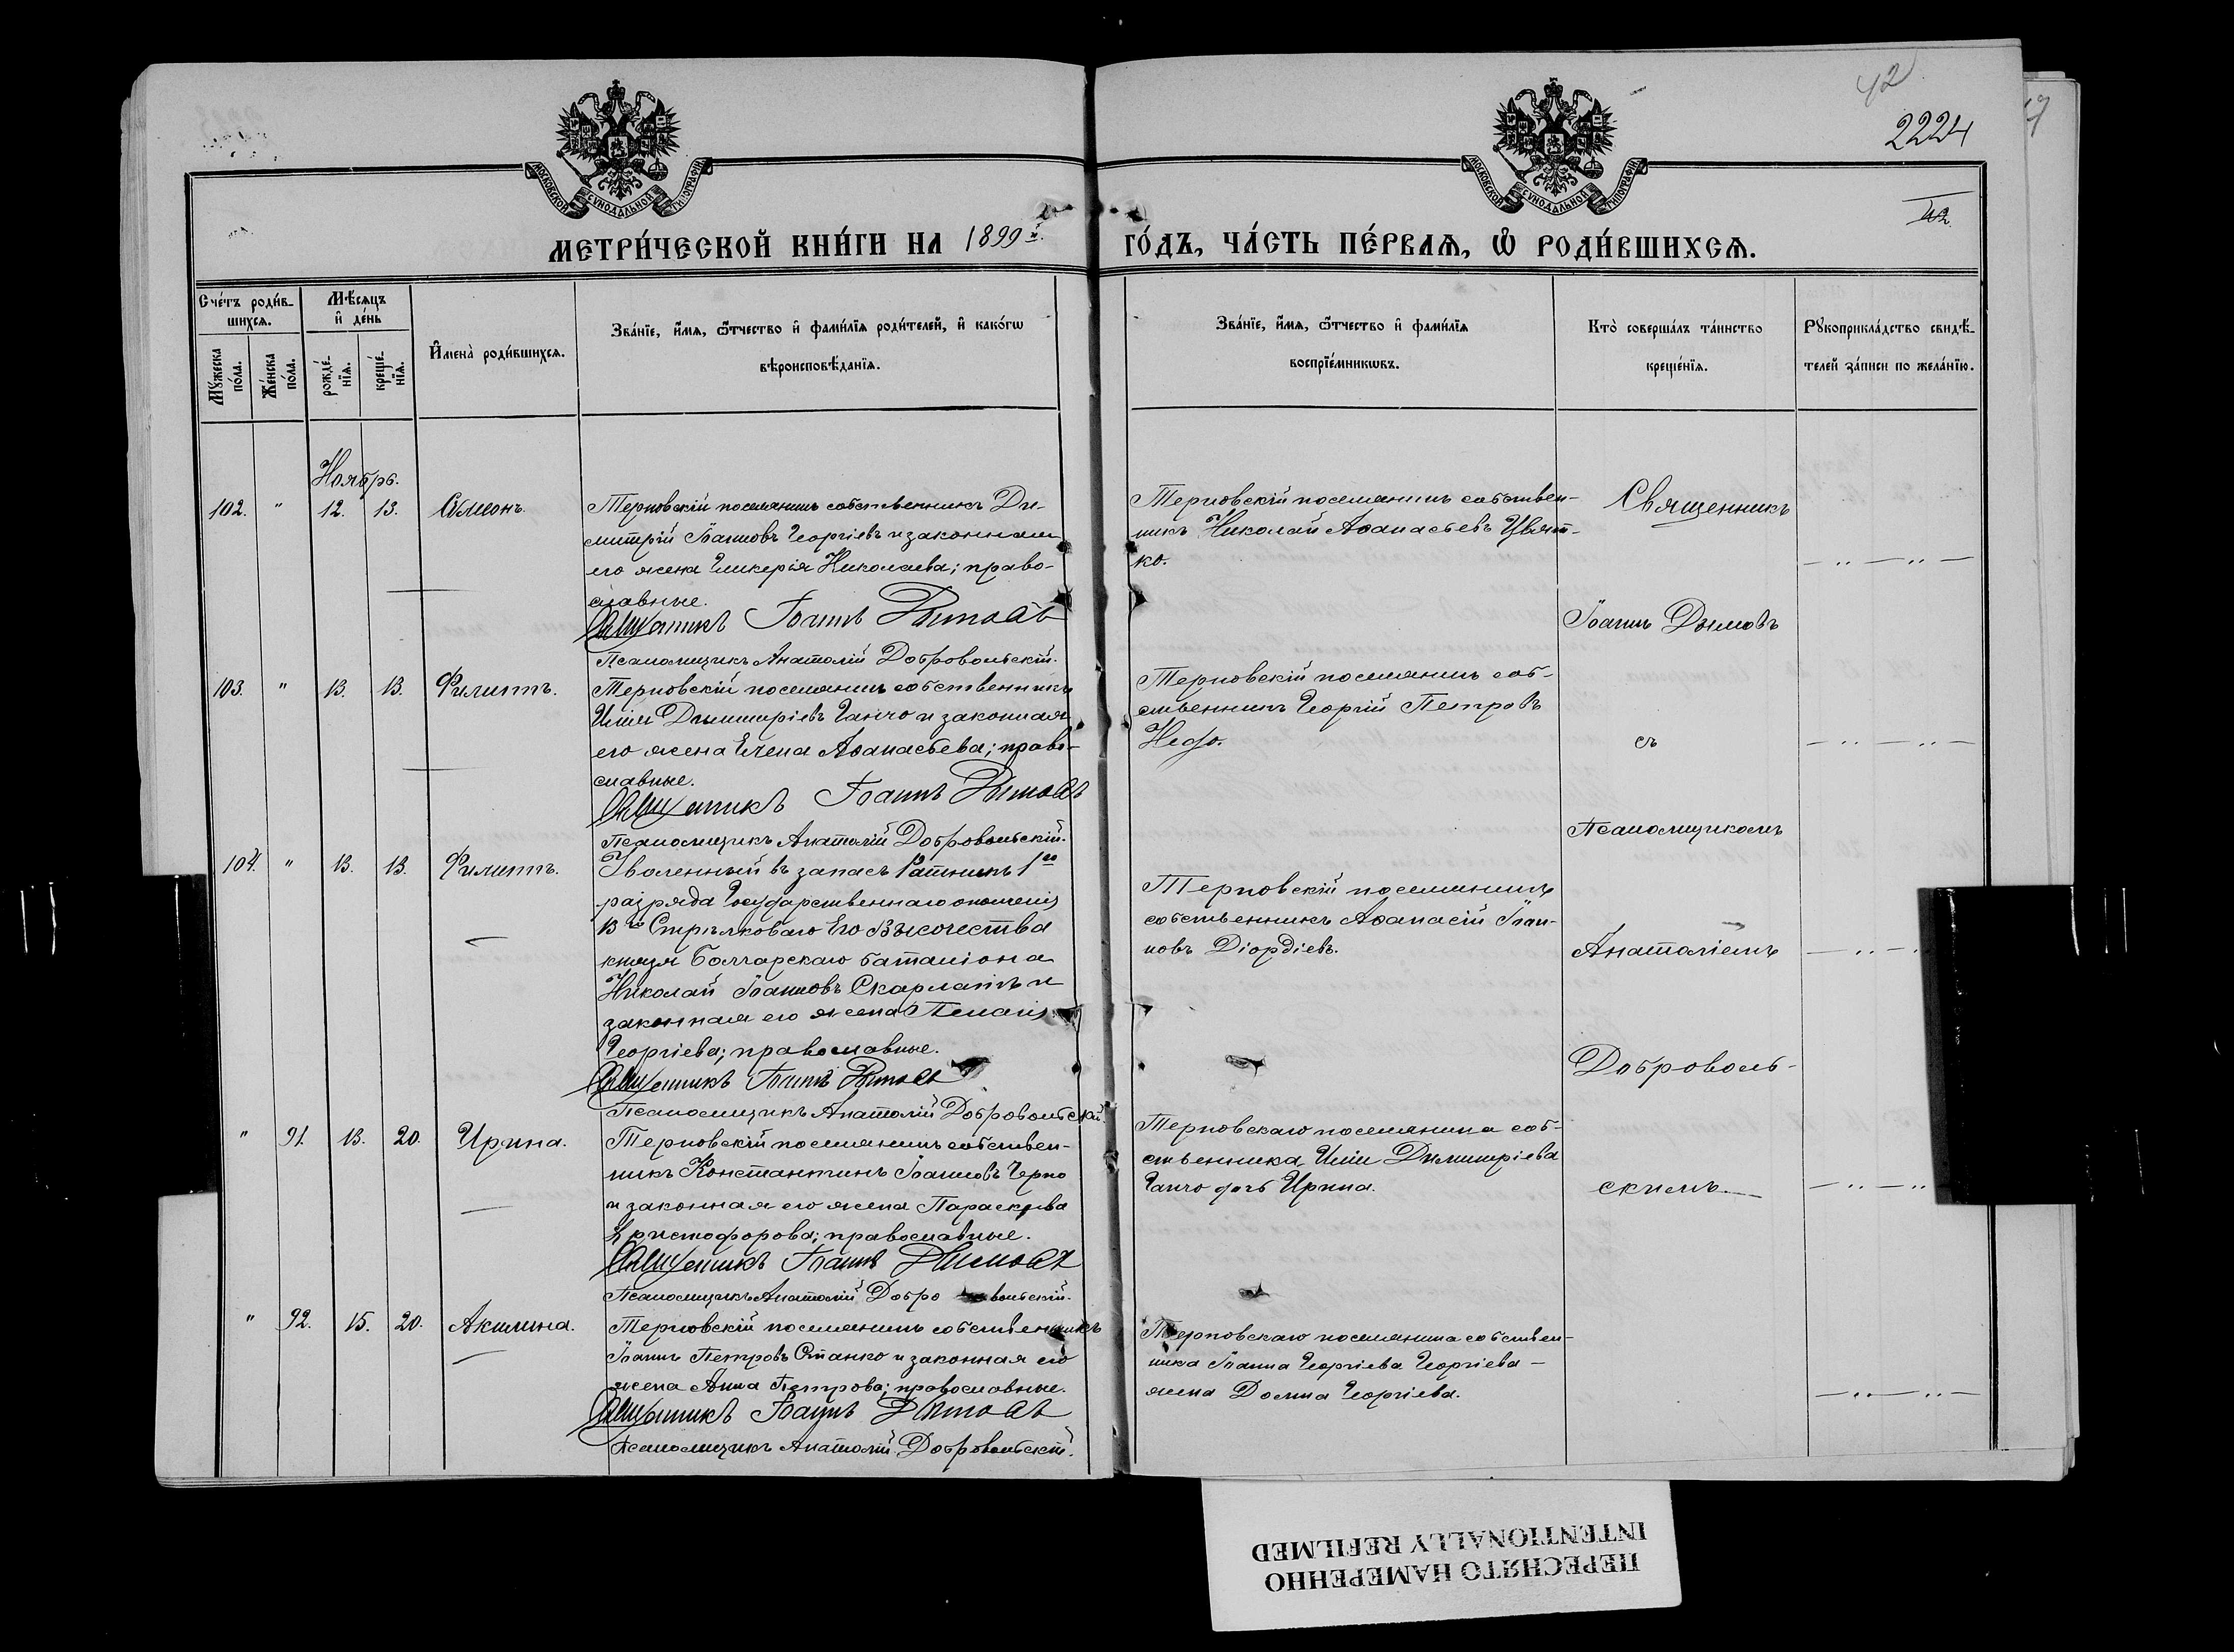 42
2224
42
МОСКОВСКОЙ СѴНОДАЛЬНОЙ ТИПОГРАФІИ
МОСКОВСКОЙ СѴНОДАЛЬНОЙ ТИПОГРАФІИ
МЕТРИ́ЧЕСКОЙ КНИ́ГИ НА 1899й
ГО́ДЪ, ЧА́СТЬ ПЕ́РВАѦ, Ѡ РОДИ́ВШИХСѦ.
Сче́тъ роди́в-
шихсѧ.
Мꙋ́жеска по́ла.
Же́нска по́ла.
Мѣ́сѧцъ и де́нь
рожде́-нїѧ.
креще́-нїѧ.
Имена̀ роди́вшихсѧ.
Зва́нїе, и́мѧ, ѻ́тчество и фами́лїѧ роди́телей, и како́гѡ
вѣроисповѣ́данїѧ.
Зва́нїе, и́мѧ, ѻ́тчество и фами́лїѧ
воспрїе́мникѡвъ.
Кто̀ соверша́лъ та́инство
креще́нїѧ.
Рꙋкоприкла́дство свидѣ́-
телей за́писи по жела́нїю.
Ноябрь.
102. " 12. 13. Симеонъ.
Терновскій поселянинъ собственникъ Ди-
митрій Іоанновъ Георгіевъ и законная
его жена Гликерія Николаева; право-
славные.
Священникъ Іоаннъ Дымовъ
Псаломщикъ Анатолій Добровольскій.
Терновскій поселянинъ собствен-
никъ Николай Аѳанасьевъ Цвят-
ко.
Священникъ
Іоаннъ Дымовъ
103. " 13. 13. Филиппъ.
Терновскій поселянинъ собственникъ
Илія Димитріевъ Ганчо и законная
его жена Елена Аѳанасьева; право-
славные.
Священникъ Іоаннъ Дымовъ
Псаломщикъ Анатолій Добровольскій.
Терновскій поселянинъ соб-
ственникъ Георгій Петровъ
съ
Псаломщикомъ
104. " 13. 13. Филиппъ.
Уволенный въ запасъ Ратникъ 1го
разряда Государственнаго ополченія
13го Стрѣлковаго Его Высочества
князя Болгарскаго баталіона
Николай Іоанновъ Скарлатъ и
законная его жена Пелагія
Георгіева; православные.
Священникъ Іоаннъ Дымовъ
Псаломщикъ Анатолій Добровольскій.
Терновскій поселянинъ
собственникъ Аѳанасій Іоан-
новъ Діордіевъ.
Анатоліемъ
Доброволь-
" 91. 13. 20. Ирина.
Терновскій поселянинъ собствен-
никъ Константинъ Іоанновъ Черно
и законная его жена Параскева
Христофорова; православные.
Священникъ Іоаннъ Дымовъ
Псаломщикъ Анатолій Добровольскій.
Терновскаго поселянина соб-
ственника Иліи Димитріева
Ганчо дочь Ирина.
скимъ
" 92. 15. 20. Акилина.
Терновскій поселянинъ собственникъ
Іоаннъ Петровъ Станко и законная его
жена Анна Петрова; православные.
Священникъ Іоаннъ Дымовъ
Псаломщикъ Анатолій Добровольскій.
Терновскаго поселянина собствен-
ника Іоанна Георгіева Георгіева
жена Домна Георгіева.
ПЕРЕСНЯТО НАМЕРЕННО
INTENTIONALLY REFILMED